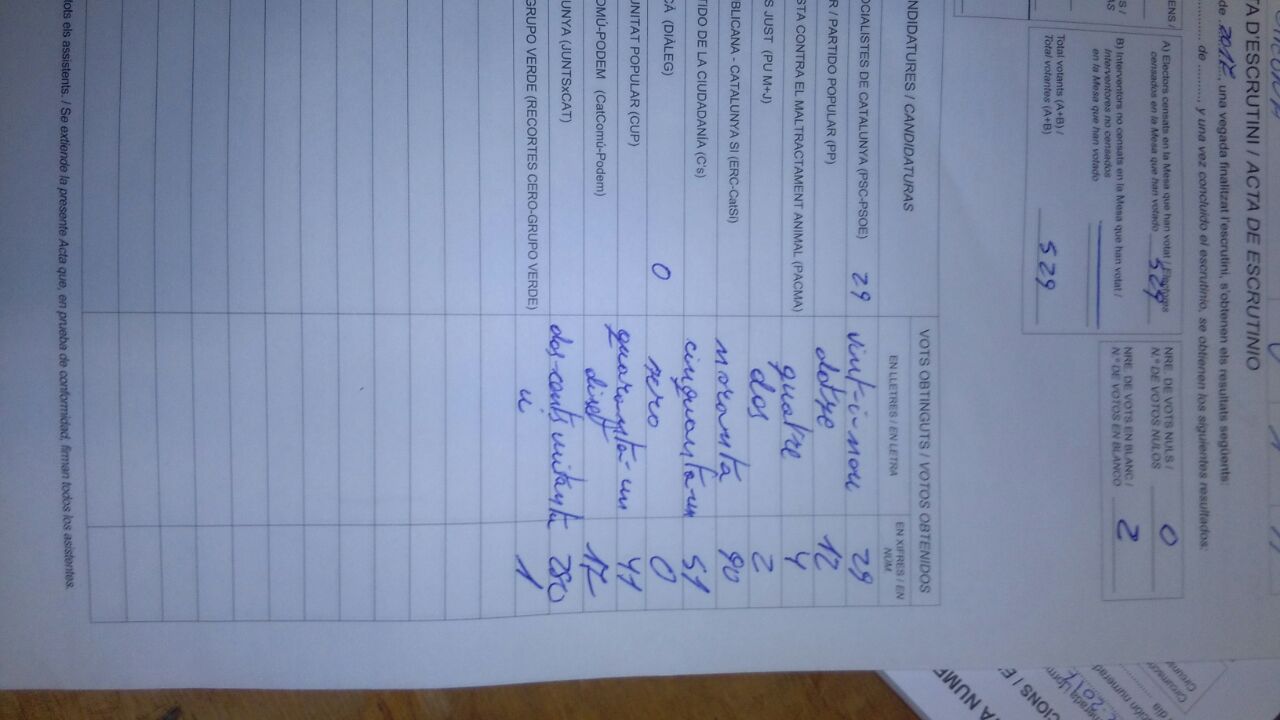 TA D'ESCRUTINI / ACTA DE ESCRUTINIO
de 2017, una vegada finalitzat l'escrutini, s'obtenen els resultats següents:
de ......... y una vez concluido el escrutinio, se obtienen los siguientes resultados:
A) Electors censats en la Mesa que han votat / Electores
censados en la Mesa que han votado 529
B) Interventors no censats en la Mesa que han votat /
Interventores no censados
en la Mesa que han votado
Total votants (A+B) /
Total votantes (A+B) 529
NRE. DE VOTS NULS /
N.º DE VOTOS NULOS 0
NRE. DE VOTS EN BLANC /
N.º DE VOTOS EN BLANCO 2
NDIDATURES / CANDIDATURAS
VOTS OBTINGUTS / VOTOS OBTENIDOS
EN LLETRES / EN LETRA
EN XIFRES / EN NÚM
OCIALISTES DE CATALUNYA (PSC-PSOE) 29 vint-i-nou 29
R / PARTIDO POPULAR (PP) dotze 12
STA CONTRA EL MALTRACTAMENT ANIMAL (PACMA) quatre 4
S JUST (PU M+J) dos 2
BLICANA - CATALUNYA SI (ERC-CatSí) noranta 90
TIDO DE LA CIUDADANÍA (C's) cinquanta-un 51
CA (DIÀLEG) 0 zero 0
UNITAT POPULAR (CUP) quaranta-un 41
OMÚ-PODEM (CatComú-Podem) disset 17
UNYA (JUNTSxCAT) dos-cents vuitanta 280
GRUPO VERDE (RECORTES CERO-GRUPO VERDE) u 1
tots els assistents. / Se extiende la presente Acta que, en prueba de conformidad, firman todos los asistentes.